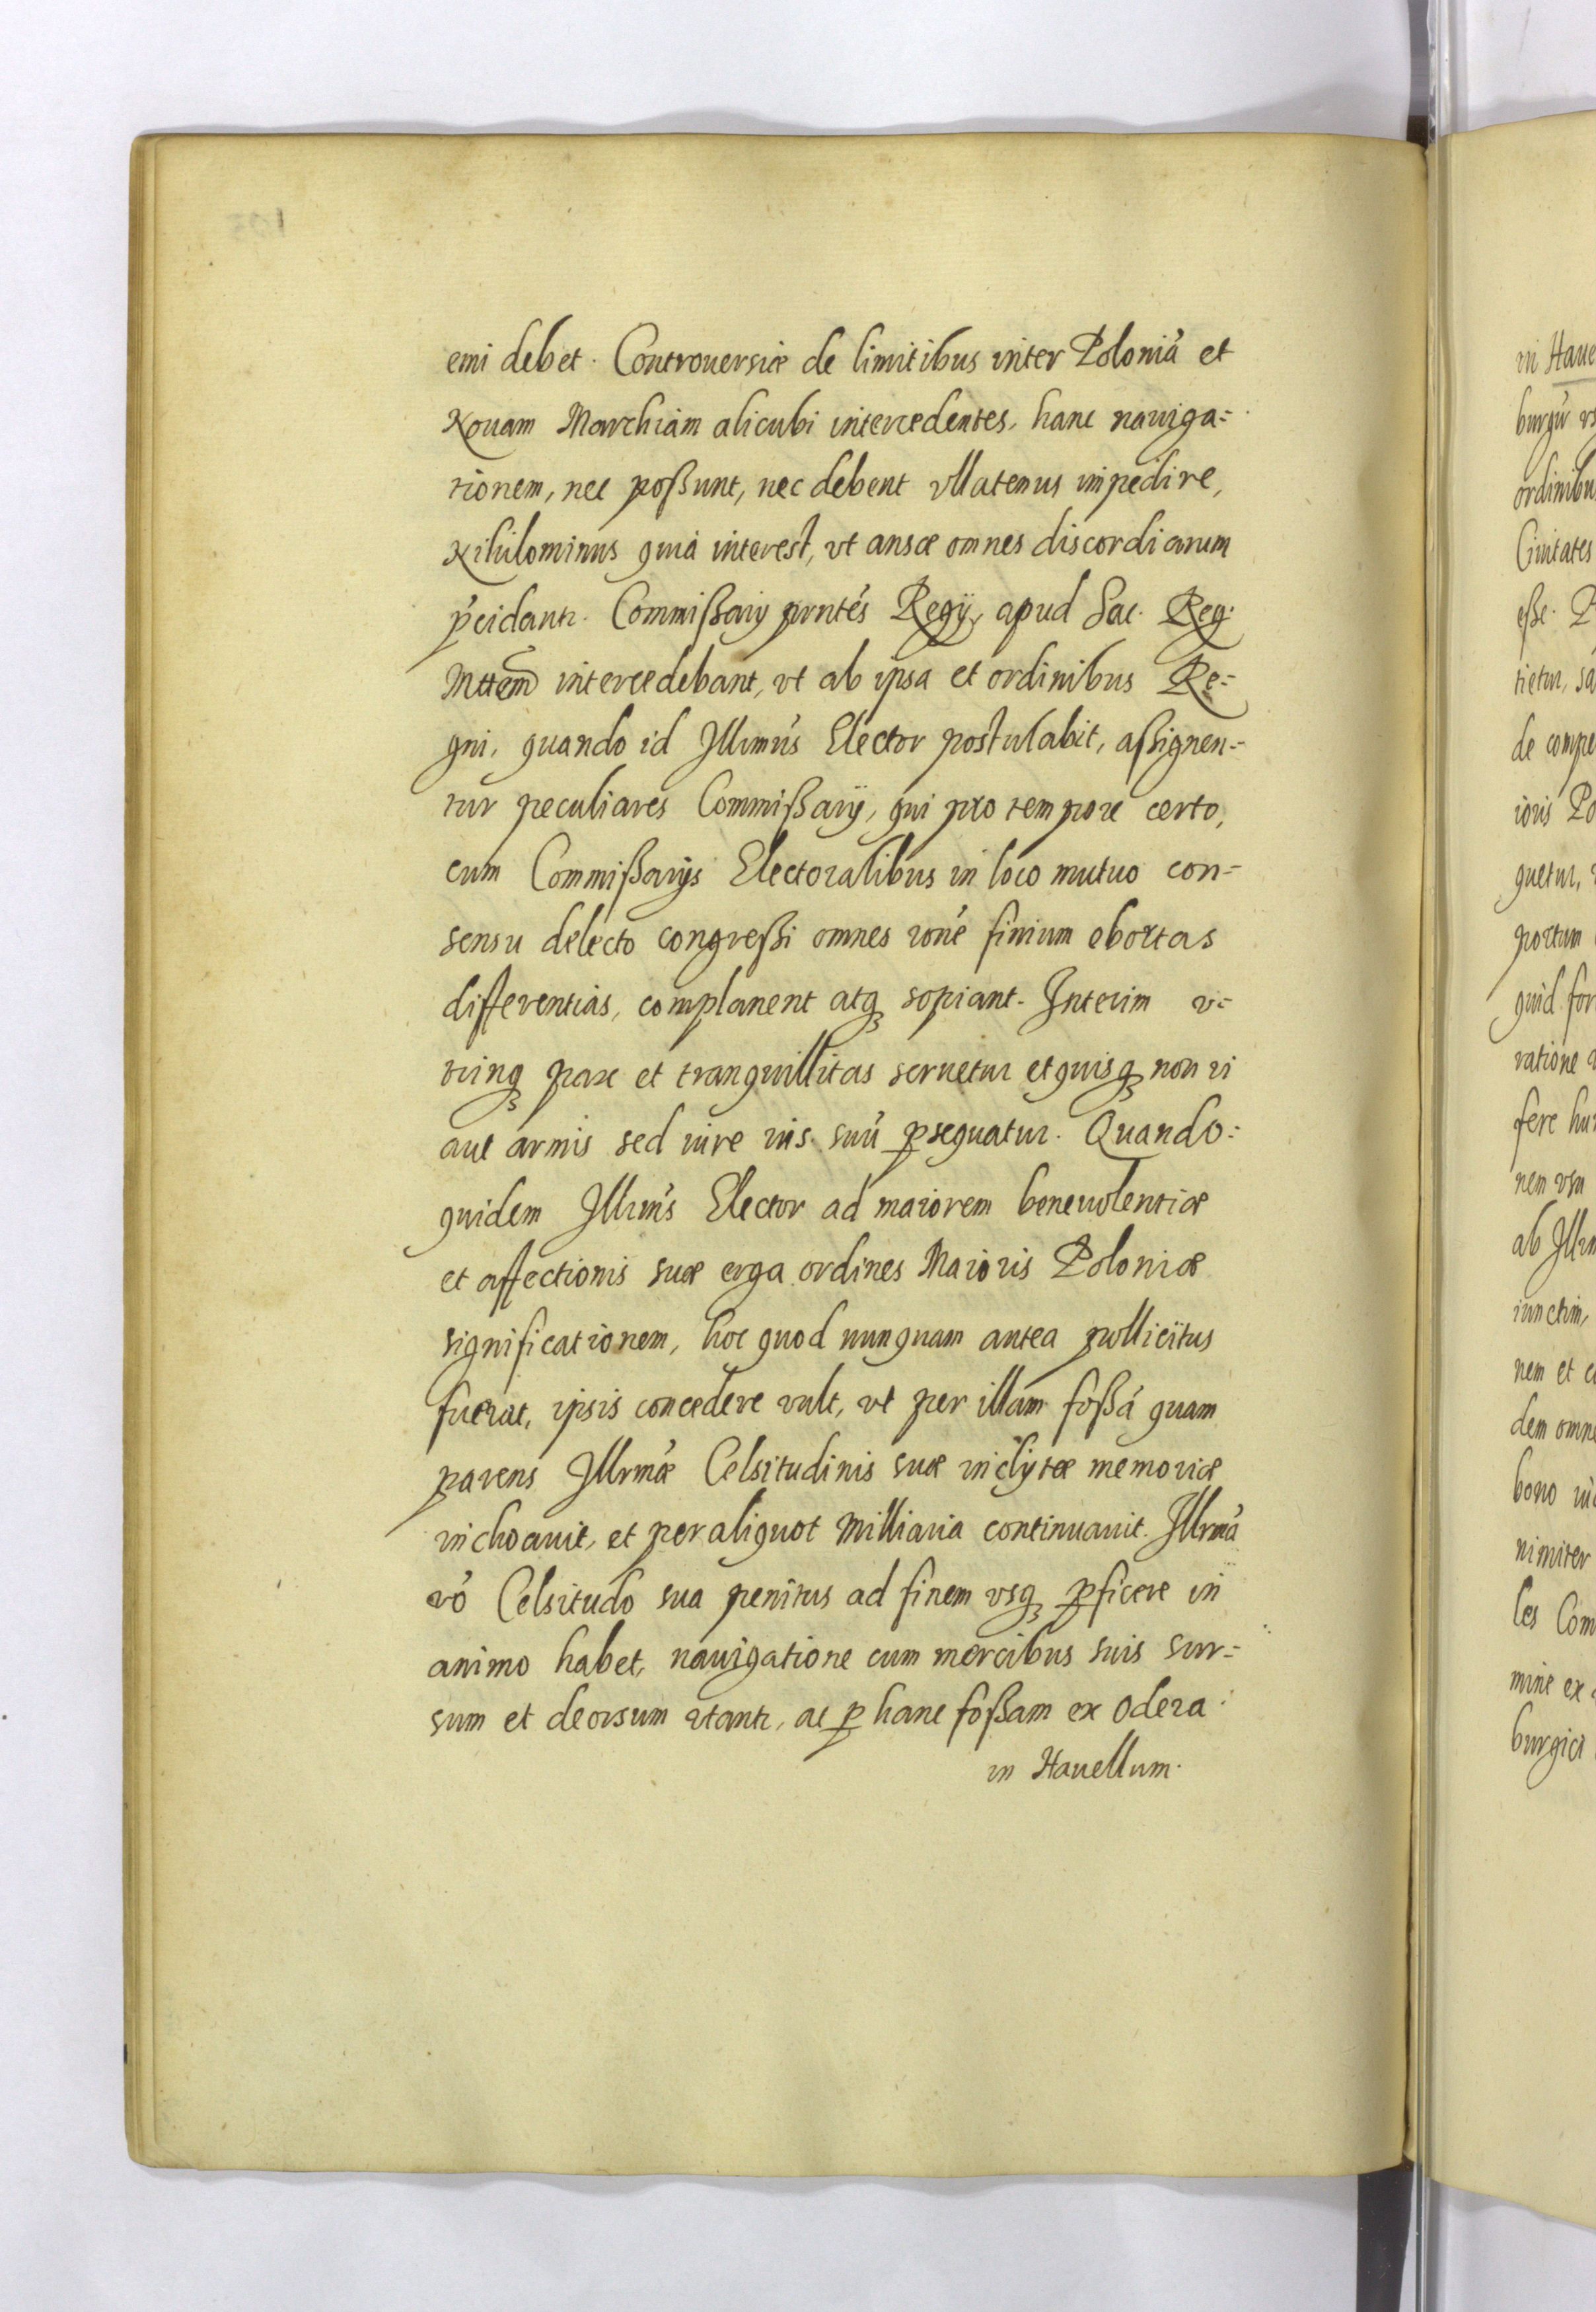 emi debet. Controuersiæ de limitibus inter Poloniá et
Nouam Marchiam alicubi intercedentes, hanc nauiga=
tionem, nec poßunt, nec debent vllatenus impedire,
Nihilominus quia interest, vt ansæ omnes discordiarum
p̓cidantr. Commißarij pṙntés Regij, apud Sac. Reg.
Mttem intercedebant, vt ab ipsa et ordinibus Re=
gni, quando id Illimús Elector postulabit, aßignen=
tur peculiares Commißarij, qui pro tempore certo,
cum Commißarijs Electoralibus in loco mutuo con=
sensu delecto congreßi omnes roné finium obortas
differentias, complanent atqꝫ sopiant. Interim v=
trinqꝫ pax et tranquillitas seruetur et quisqꝫ non vi
aut armis sed iure ius suú ꝑsequatur. Quando=
quidem Illimús Elector ad maiorem beneuolentiæ
et affectionis suæ erga ordines Maioris Poloniæ
significationem, hoc quod nunquam antea pollicitus
fuerat, ipsis concedere vult, vt per illam foßá quam
parens Illrmǽ Celsitudinis suæ inclytæ memoriæ
inchoauit, et per aliquot milliaria continuauit. Illrmá
vó Celsitudo sua penitus ad finem vsqꝫ ꝑficere in
animo habet, nauigatione cum mercibus suis sur=
sum et deorsum vtantr, ac ꝑ hanc foßam ex Odera
in Hauellum.
in Haue
burgú vs
ordinibu
Ciuitates
eße. P
tietur, sa
de compe
ioris Po
quetur,
portum
quid for
ratione
fere hu
nem vsu
ab Illm
iunctim,
nem et c
dem omn
bono
nimiter
les Com
mine ex
burgici